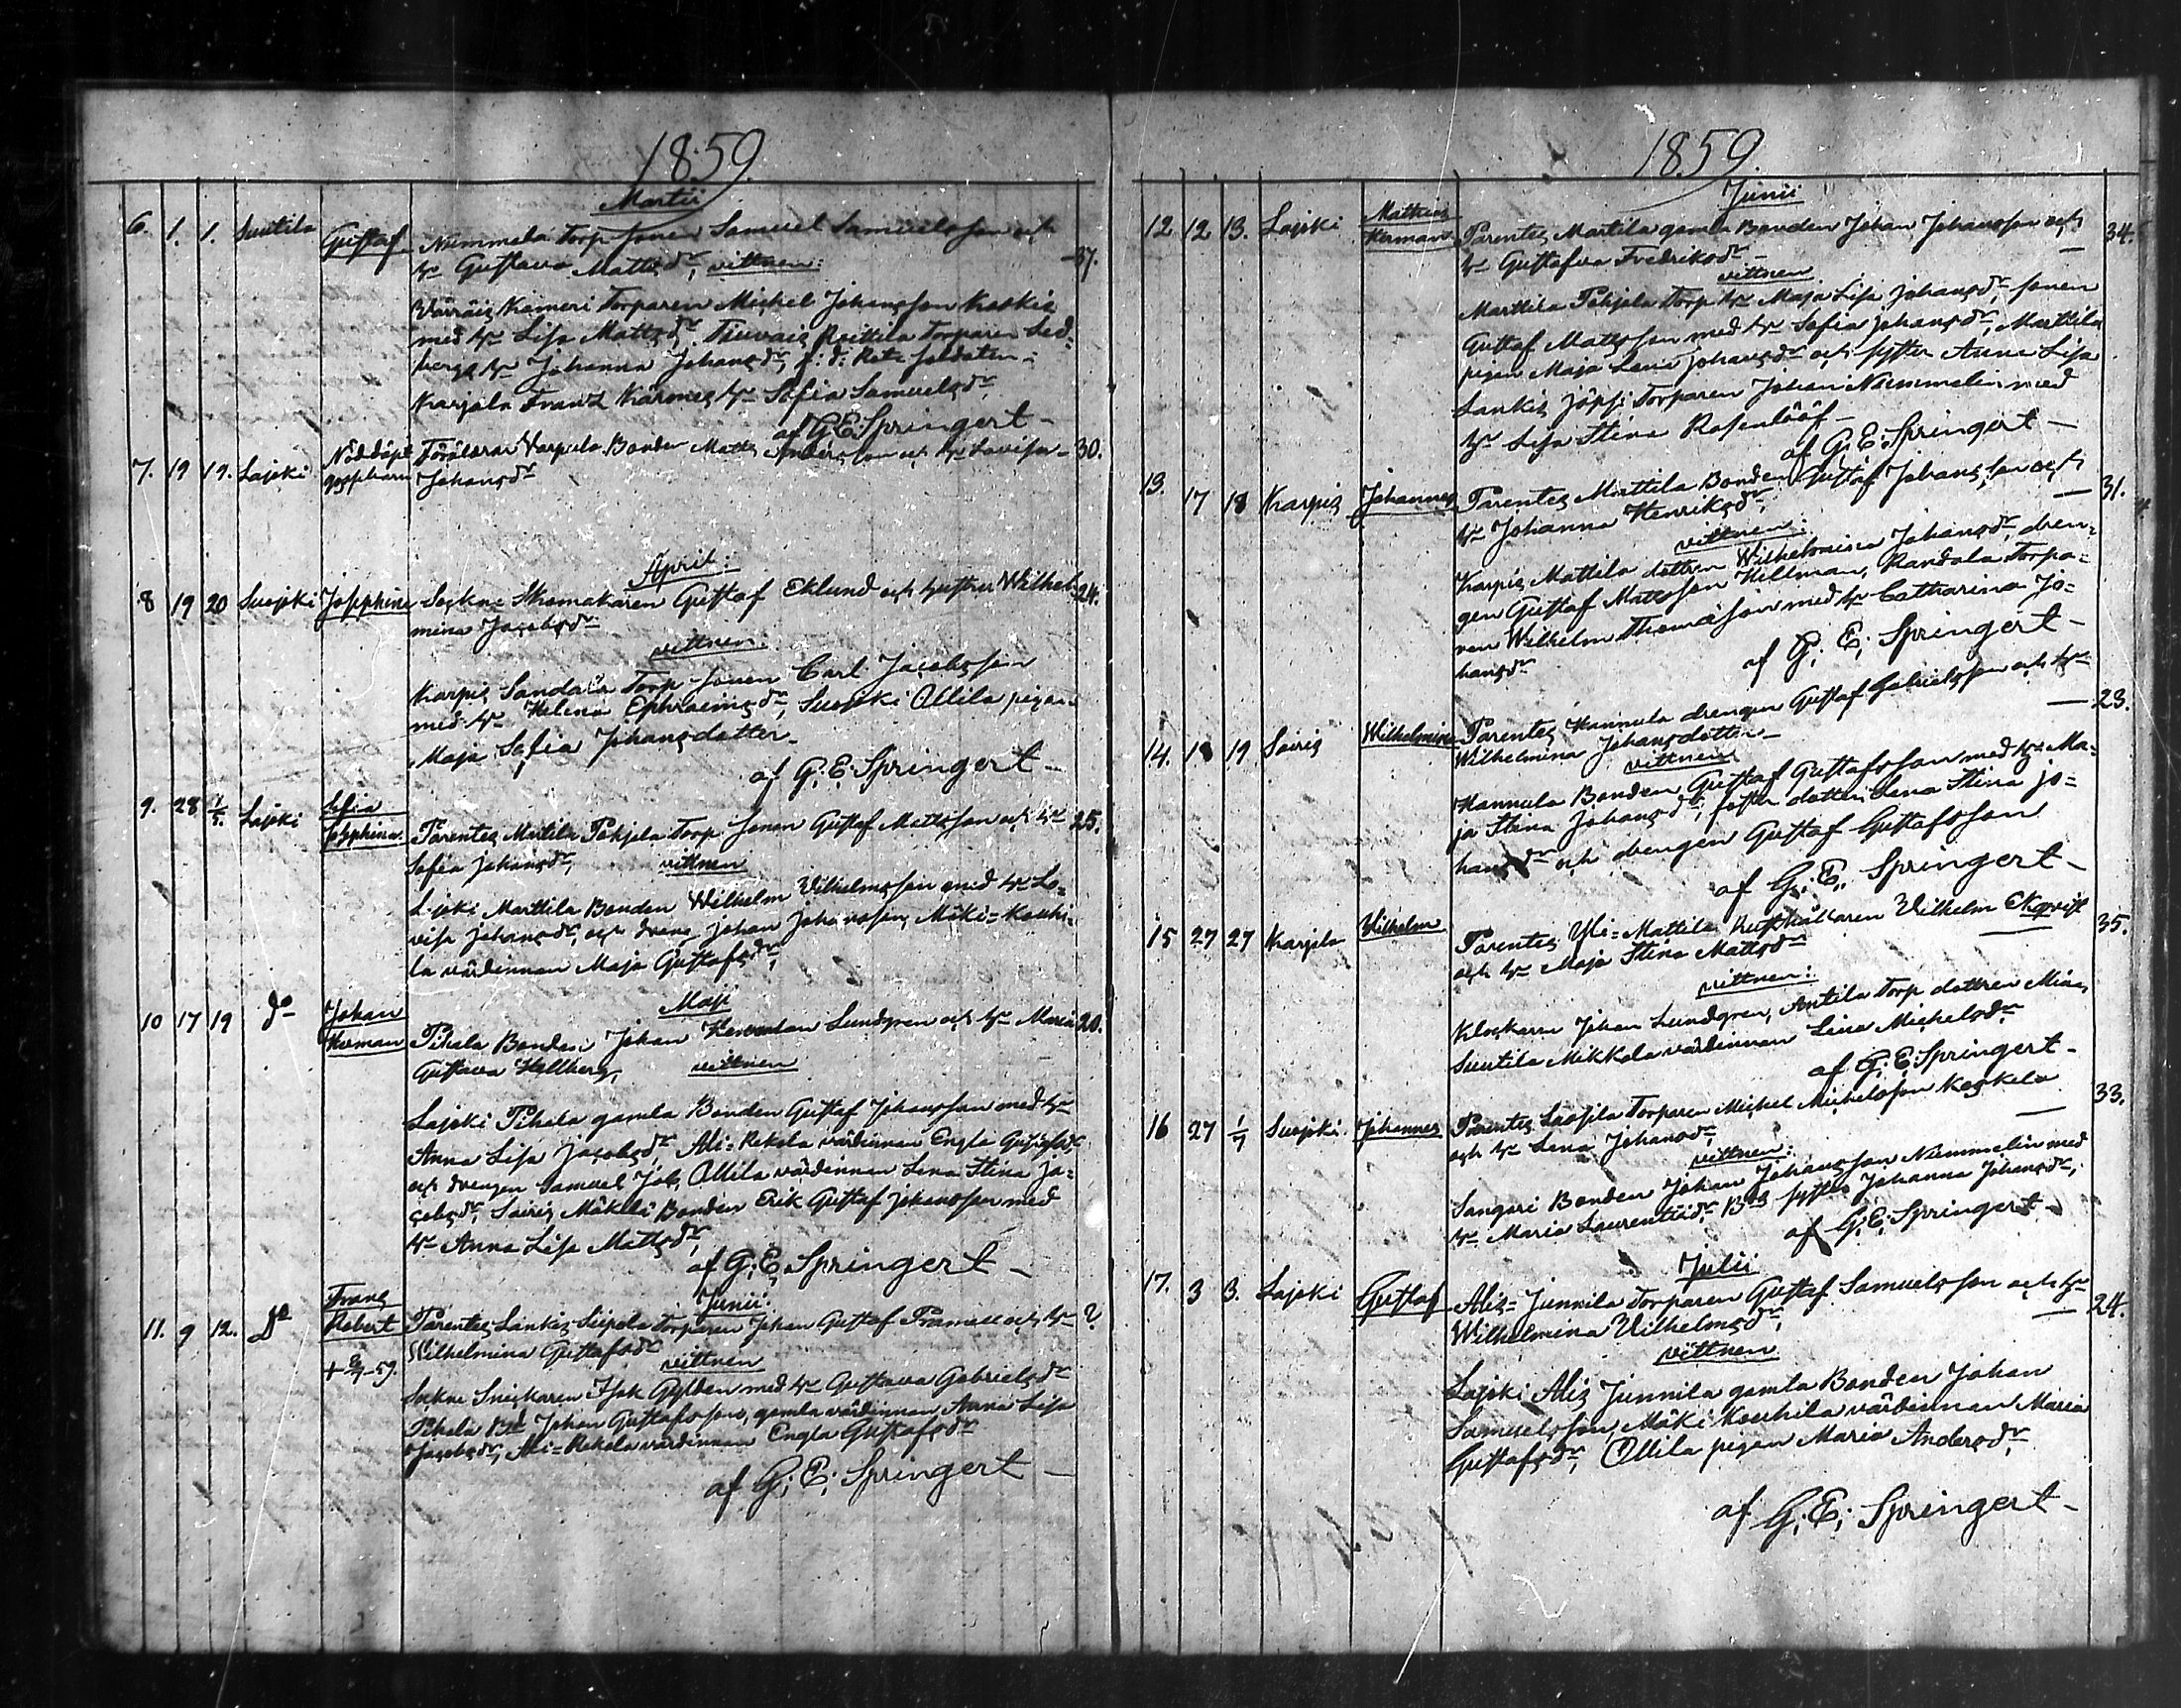 1859.
Martii
6. 1. 1. Suutila Gustaf Nummela Torp sonen Samuel Samuelsson och 37.
hu Gustava Mattsdr, vittnen:
Torparen Michel Johansson Koskis
med hu Lisa Mattsdr, Roittila Torparen Sed=
bergs hu Johanna Johansdr, f: d: Rote soldaten
Karjala Frans hu Sofia Samuelsdr
af G. E. Springert
7. 19 19. Lajoki Nöddöpt gossebarn Föräldrar Bonden Matts Andersson och hu Lovisa 30.
Johansdr
April:
8 19 20 Suojoki Josephina Sockne Skomakaren Gustaf Eklund och hustru Wilhel= 24.
mina Jacobsdr
vittnen:
Karpis Sandala Torp sonen Carl Jacobsson
med hu Helena Ephraimsdr, Suojoki Ollila pigan
Maja Sofia Johansdotter
af G. E. Springert
9. 28 1/5. Lajoki Sofia Josephina Parentes Martila Pohjola Torp sonen Gustaf Mattsson och hu 25.
Sofia Johansdr, vittnen
Lajoki Marttila Bonden Wilhelm Wilhelmsson med hu Lo=
visa Johansdr, och dreng Johan Johansson, Mäki=Kouhi=
la värdinnan Maja Gustafsdr,
Maji
10 17 19 do Johan Herman Pihala Bonden Johan Herman Lundgren och hu Maria 20.
Gustava Hellberg, vittnen
Lajoki Pihala gamla Bonden Gustaf Johansson med hu
Anna Lisa Jacobsdr, Ali=Rekola värdinnan Engla Gustafsdr
och drengen Samuel Job, Ollila värdinnan Lena Stina Ja=
cobsdr, Sairis Mäkilä Bonden Erik Gustaf Johansson med
hu Anna Lisa Mattsdr,
af G. E. Springert
Junii:
11. 9 12. Do Frans Robert Parentes Lankis Seipola Torparen Johan Gustaf och hu ?
Wilhelmina Gustafsdr
vittnen
Sockne Snickaren Isak Gylden med hu Gustava Gabrielsdr
Pihala Bd Johan Gustafsson, gamla värdinnan Anna Lisa
Jacobsdr, Ali=Rekola värdinnan Engla Gustafsdr
af G. E. Springert
1859.
Junii
12 12 13. Lajoki Mathias Herman Parentes Martila gamla Bonden Johan Johansson och 34.
hu Gustafva Fredriksdr
vittnen
Marttila Pohjola Torp hu Maja Lisa Johansdr, sonen
Gustaf Mattsson med hu Sofia Johansdr, Marttila
pigan Maja Lena Johansdr och syster Anna Lisa
Lankis Torparen Johan Nummelin med
hu Lisa Stina Rosenlööf
af G. E. Springert
13. 17 18 Karpis Johannes Parentes Mattila Bonden Gustaf Johansson och 31.
hu Johanna Henriksdr,
vittnen:
Karpis Mattila dottren Wilhelmina Johansdr, dren=
gen Gustaf Mattsson Hellman, Randala Torpa=
ren Wilhelm Thomasson med hu Catharina Jo=
hansdr
af G. E. Springert
14. 18 19 Sairis Wilhelmina Parentes Hannula drengen Gustaf Gabrielsson och hu 23.
Wilhelmina Johansdotter
vittnen
Hannula Bonden Gustaf Gustafsson med hu Ma=
ja Stina Johansdr, foster dotter Lena Stina Jo=
hansdr och drengen Gustaf Gustafsson
af G. E. Springert
15 27 27 Karjala Wilhelm Parentes Yli=Mattila Wilhelm Ekqvist 35.
och hu Maja Stina Mattsdr
vittnen:
Klockaren Johan Lundgren, Antila Torp dottren Mina
Suutila Mikkola värdinnan Lisa Michelsdr
af G. E. Springert
16 27 1/7 Suojoki Johannes Parentes Torparen Michel Michelsson Koskela 33.
och hu Lena Johansdr,
vittnen:
Sangari Bonden Johan Johansson Nummelin med
hu Maria Laurentiidr, Bds syster Johanna Johansdr,
af G. E. Springert
Julii
17. 3 3. Lajoki Gustaf Alis=Junnila Torparen Gustaf Samuelsson och hu 24.
Wilhelmina Wilhelmsdr,
vittnen
Lajoki Alis Junnila gamla Bonden Johan
Samuelsson, Mäki Kouhila värdinnan Maria
Gustafsdr, Ollila pigan Maria Andersdr,
af G. E. Springert